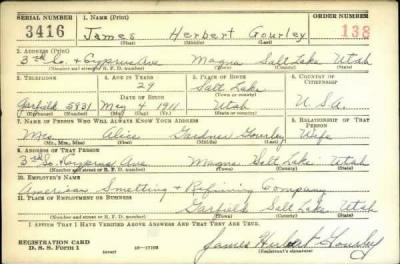 SERIAL NUMBER 1. NAME (Print) ORDER NUMBER
3416 James Herbert Gourley 138
(First) (Middle) (Last)
2. ADDRESS (Print)
3rd So. & Cyprus Ave Magna Salt Lake Utah
(Number and street or R. F. D. number) (Town) (County) (State)
3. TELEPHONE 4. AGE IN YEARS 5. PLACE OF BIRTH 6. COUNTRY OF CITIZENSHIP
29 Salt Lake
DATE OF BIRTH (Town or county)
Garfield 5931 May 4 1911 Utah U.S.A.
(Exchange) (Number) (Mo.) (Day) (Yr.) (State or country)
7. NAME OF PERSON WHO WILL ALWAYS KNOW YOUR ADDRESS 8. RELATIONSHIP OF THAT PERSON
Mrs. Alice Gardner Gourley Wife
(Mr., Mrs., Miss) (First) (Middle) (Last)
9. ADDRESS OF THAT PERSON
3rd So. Cyprus Ave Magna Salt Lake Utah
(Number and street or R. F. D. number) (Town) (County) (State)
10. EMPLOYER'S NAME
American Smelting & Refining Company
11. PLACE OF EMPLOYMENT OR BUSINESS
Garfield Salt Lake Utah
(Number and street or R. F. D. number) (Town) (County) (State)
I AFFIRM THAT I HAVE VERIFIED ABOVE ANSWERS AND THAT THEY ARE TRUE.
REGISTRATION CARD
D. S. S. Form 1 James Herbert Gourley
(Registrant's signature)